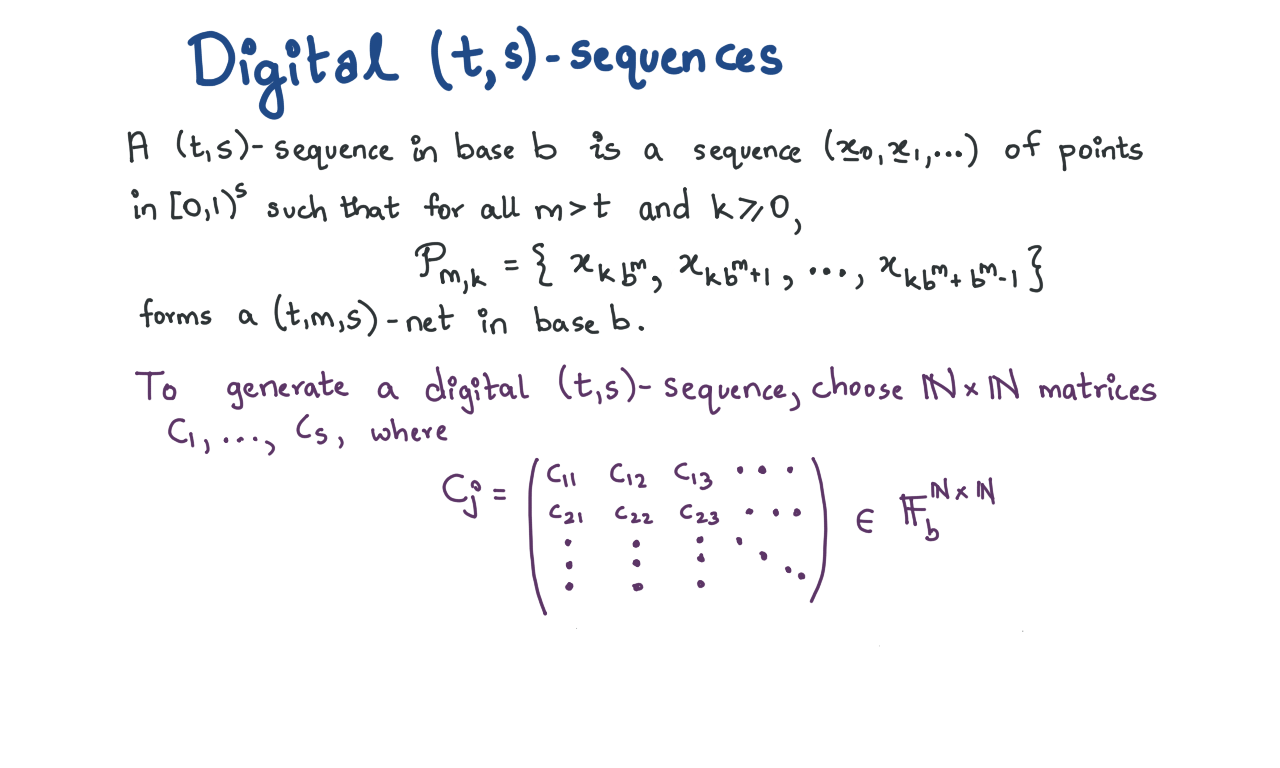 Digital (t,s)-sequences
A (t,s)-sequence in base b is a sequence (x̲₀, x̲₁, ...) of points
in [0,1)ˢ such that for all m>t and k⩾0,
𝒫_{m,k} = { x_{kb^m}, x_{kb^m+1}, ..., x_{kb^m+b^m-1} }
forms a (t,m,s)-net in base b.
To generate a digital (t,s)-sequence, choose ℕ×ℕ matrices
C₁, ..., Cₛ, where
C_j = ( c₁₁ c₁₂ c₁₃ ...
c₂₁ c₂₂ c₂₃ ...
⋮ ⋮ ⋮ ⋱ ) ∈ 𝔽_b^{ℕ×ℕ}